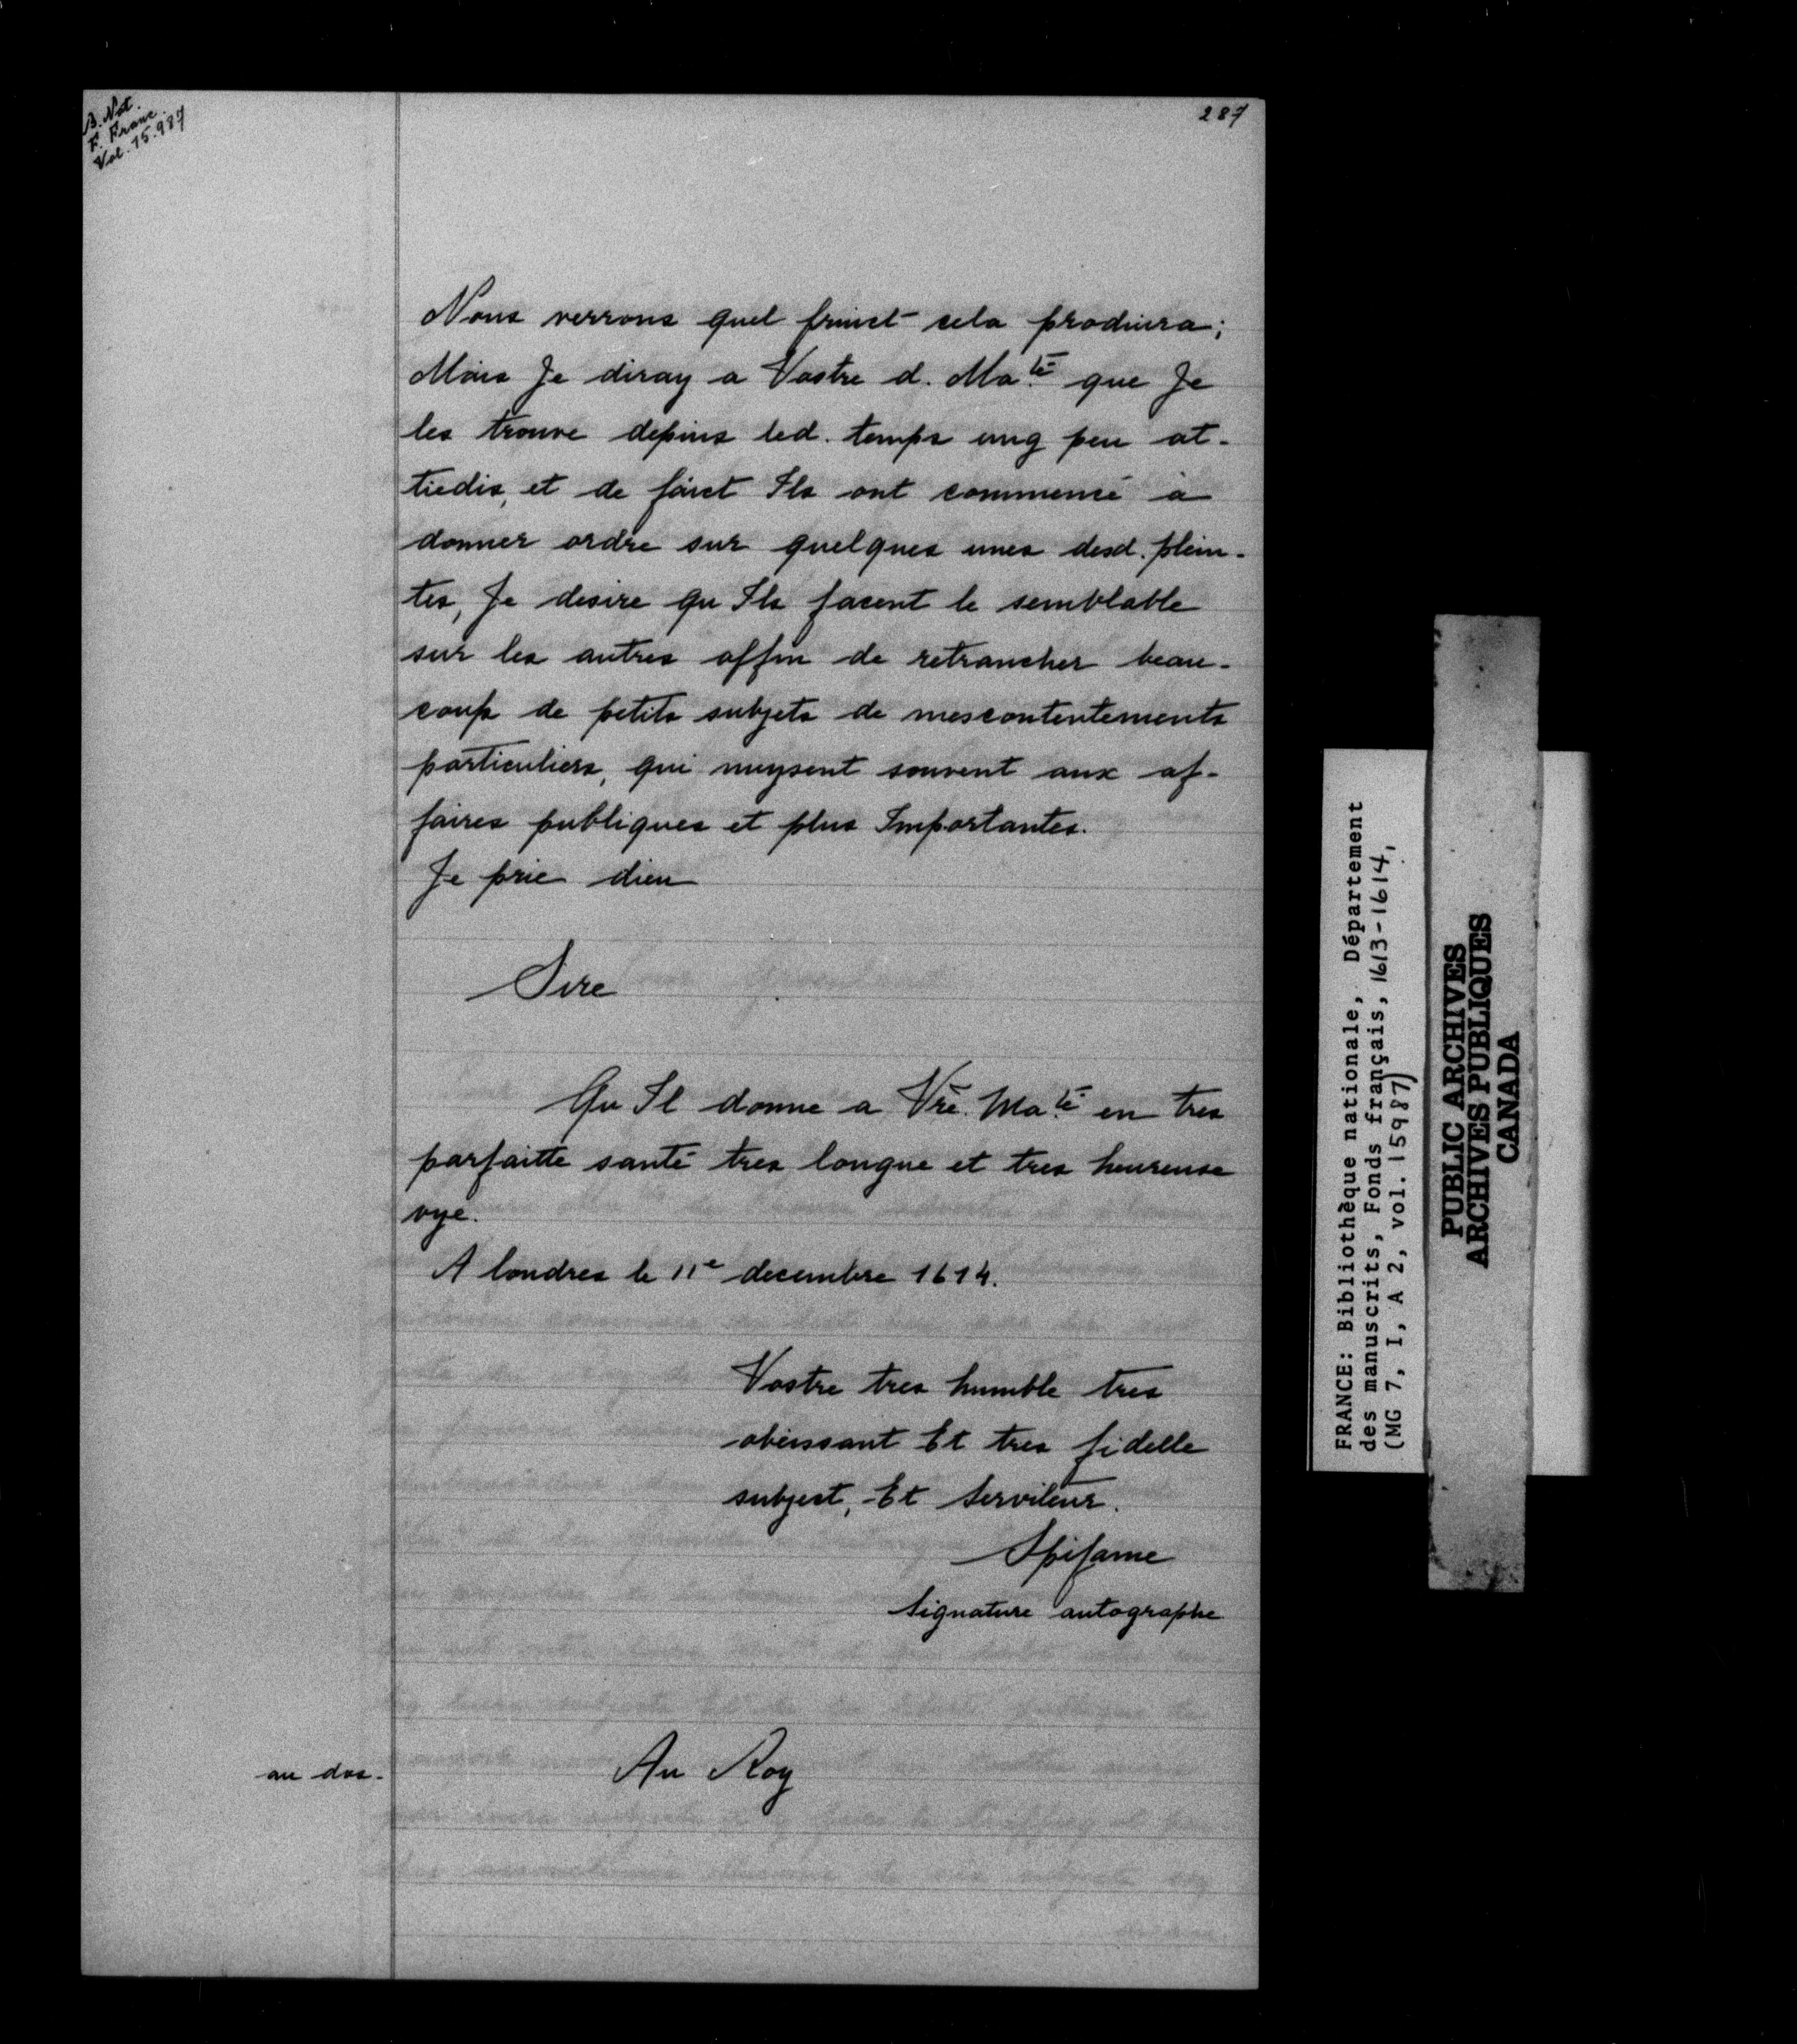 B. Nat.
F. Franc.
Vol. 15.987
287
Nous verrons quel fruict cela produira;
Mais Je diray a Vostre d. Ma.té que Je
les trouve depuis led. temps ung peu at-
tiedis, et de faict Ils ont commencé à
donner ordre sur quelques unes desd. plein-
tes, Je desire qu Ils facent le semblable
sur les autres affin de retrancher beau-
coup de petits subjets de mescontentements
particuliers, qui nuysent souvent aux af-
faires publiques et plus Importantes.
Je prie dieu
Sire
Qu Il donne a Vre. Ma.té en tres
parfaitte santé tres longue et tres heureuse
vye.
A londres le 11e decembre 1614.
Vostre tres humble tres
obeissant Et tres fidelle
subject, Et Serviteur.
Spifame
Signature autographe
au dos-
Au Roy
FRANCE: Bibliothèque nationale, Département
des manuscrits, Fonds français, 1613-1614,
(MG 7, I, A 2, vol. 15987)
PUBLIC ARCHIVES
ARCHIVES PUBLIQUES
CANADA